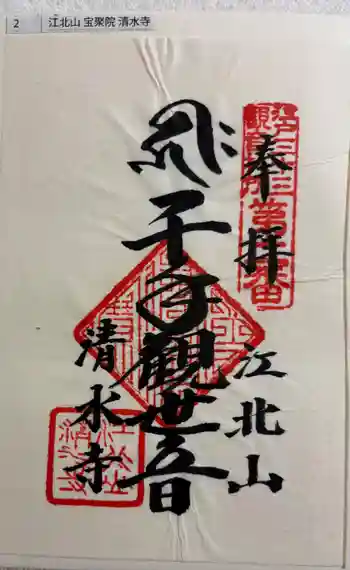 2 江北山 宝聚院 清水寺
奉拝
千手観世音
江北山
清水寺